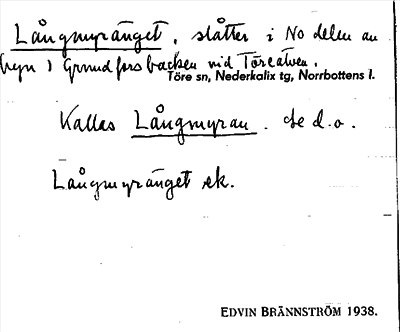 Långmyränget, slåtter i No delen av
byn i Grundforsbacken vid Töreälven.
Töre sn, Nederkalix tg, Norrbottens l.
Kallas Långmyran. Se d.o.
Långmyränget ek.
EDVIN BRÄNNSTRÖM 1938.